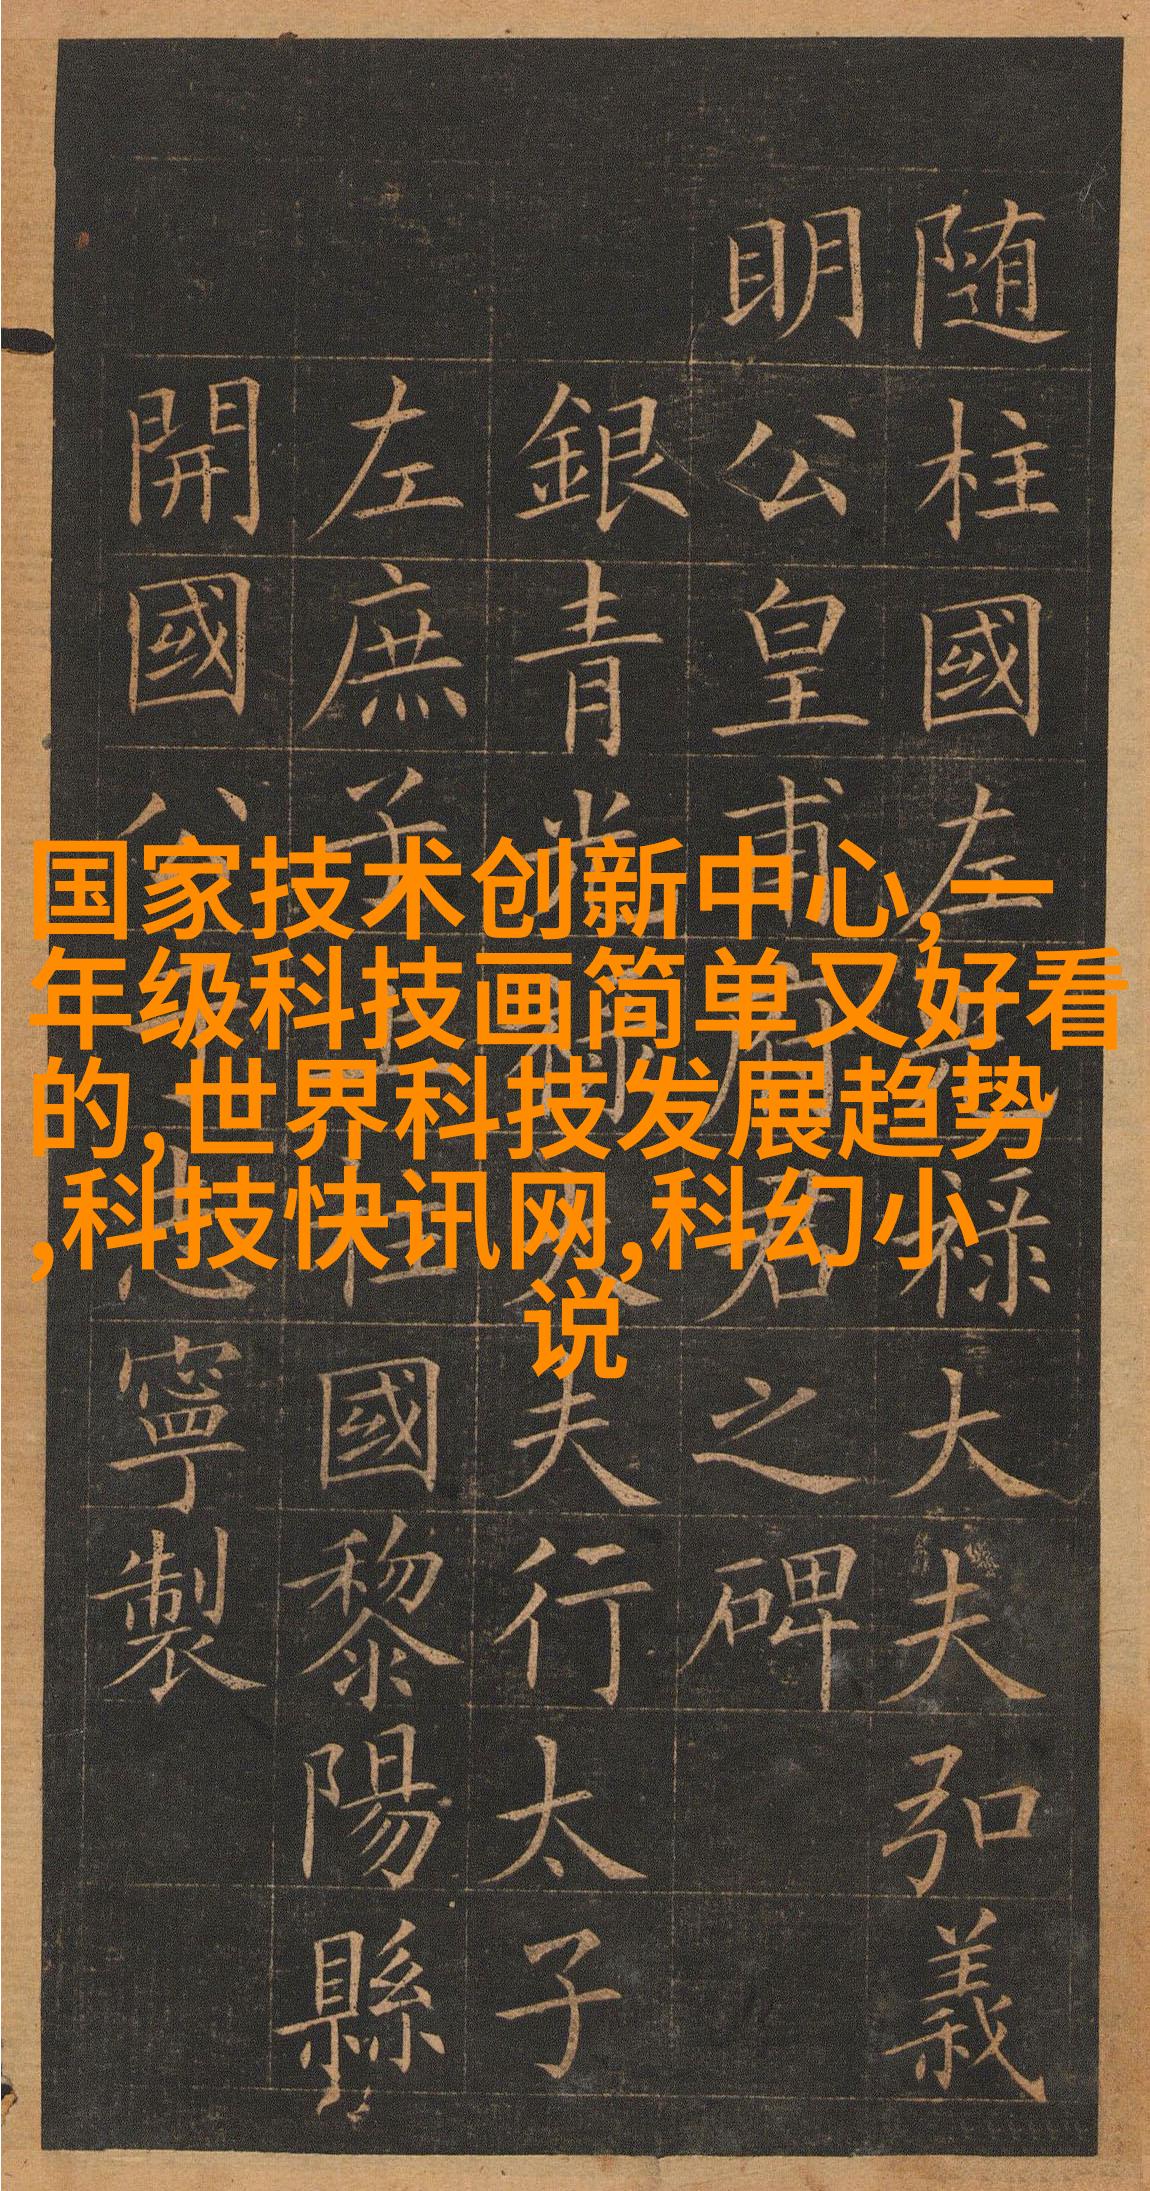 国家技术创新中心,一
年级科技画简单又好看
的,世界科技发展趋势
,科技快讯网,科幻小
说
随柱國左光禄大夫弘義
明公皇甫府君之碑
銀青光禄大夫行太子
左庶子上柱國黎陽縣
開國公于志寧製